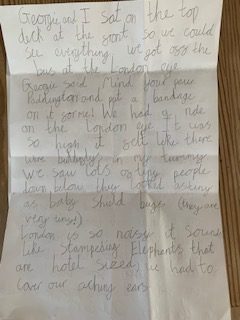 Georgie and I sat on the top
deck at the front so we could
see everything we got off the
bus at the London eye
Georgie said Mind your paw
Paddington and put a bandage
on it for me! We had a ride
on the London eye It was
so high it felt like there
were butterflys in my tummy
We saw lots of tiny people
down below they looked as tiny
as baby Shield bugs (they are
very tiny!)
London is so noisey it Sounds
like Stampeding Elephants that
are hotel sized we had to
cover our aching ears